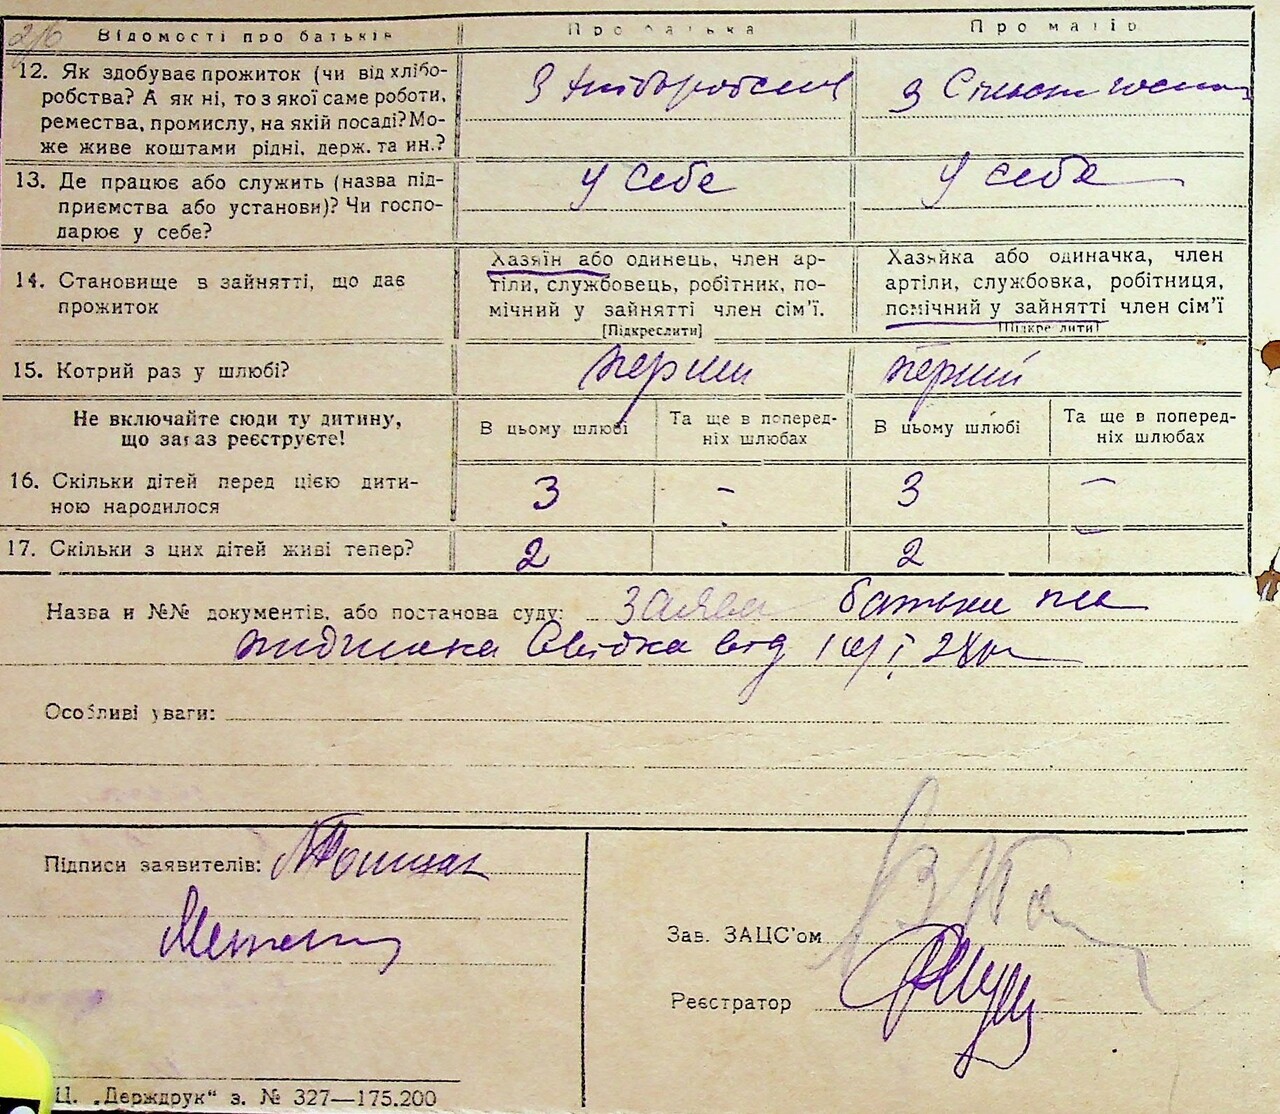 2/6
Відомості про батьків
Про батька
Про матір
12. Як здобуває прожиток (чи від хлібо-
робства? А як ні, то з якої саме роботи,
ремества, промислу, на якій посаді? Мо-
же живе коштами рідні, держ. та ин.?
З хліборобства
З Сільськ госп
13. Де працює або служить (назва під-
приємства або установи)? Чи госпо-
дарює у себе?
У себе
У себе
14. Становище в зайнятті, що дає
прожиток
Хазяїн або одинець, член ар-
тіли, службовець, робітник, по-
мічний у зайнятті член сім'ї.
[Підкреслити]
Хазяйка або одиначка, член
артіли, службовка, робітниця,
помічний у зайнятті член сім'ї
[Підкреслити]
15. Котрий раз у шлюбі?
перший
перший
Не включайте сюди ту дитину,
що зараз реєструєте!
В цьому шлюбі
Та ще в поперед-
ніх шлюбах
В цьому шлюбі
Та ще в поперед-
ніх шлюбах
16. Скільки дітей перед цією дити-
ною народилося
3
-
3
-
17. Скільки з цих дітей живі тепер?
2
2
Назва и №№ документів, або постанова суду: Заява батьки
Свідка від
Особливі уваги:
Підписи заявителів:
Зав. ЗАЦС'ом
Реєстратор
Ц. „Держдрук" з. № 327—175.200